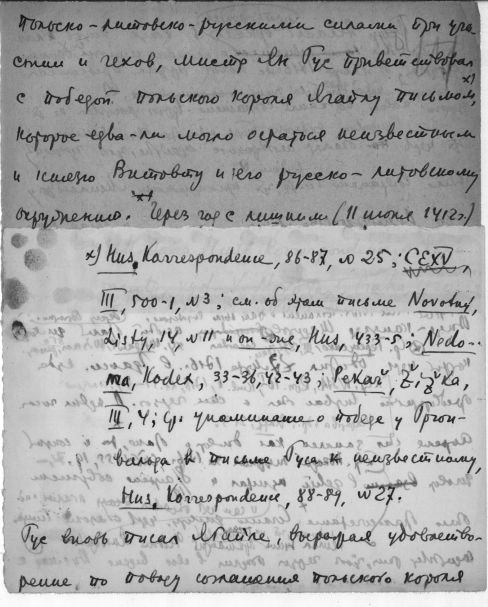 польско-литовско-русскими силами при уча-
стии и чехов, мистр Ян Гус приветствовал
с победой польского короля Ягайлу письмом, х)
которое едва-ли могло остаться неизвестным
и князю Витовту и его русско-литовскому
окружению. Через год с лишним (11 июня 1412 г.)
х) Hus, Korrespondence, 86-87, № 25; CEXV,
III, 500-1, № 3; см. об этом письме Novotný,
Listy, 14, № 11 и он-же, Hus, 433-5; Nedo-
ma, Kodex, 33-36, 42-43; Pekař, Žižka,
III, 4; ср. упоминание о победе у Грюн-
вальда в письме Гуса к неизвестному,
Hus, Korrespondence, 88-89, № 27.
Гус вновь писал Ягайле, выражая удовлетво-
рение по поводу соглашения польского короля